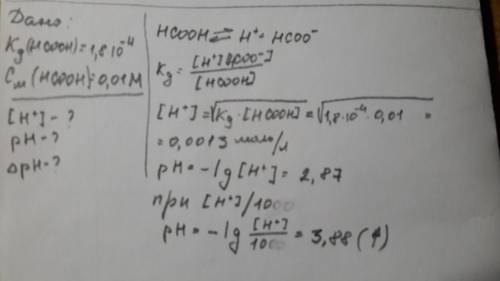 Дано:
Kд(HCOOH)=1,8·10⁻⁴
Cм(HCOOH)=0,01M
[H⁺]-?
pH-?
ΔpH-?
HCOOH⇌H⁺+HCOO⁻
Kд=[H⁺][HCOO⁻]/[HCOOH]
[H⁺]=√Kд·[HCOOH]=√1,8·10⁻⁴·0,01=
=0,0013 моль/л
pH=-lg[H⁺]=2,87
при [H⁺]/10
pH=-lg [H⁺]/10=3,88(↑)